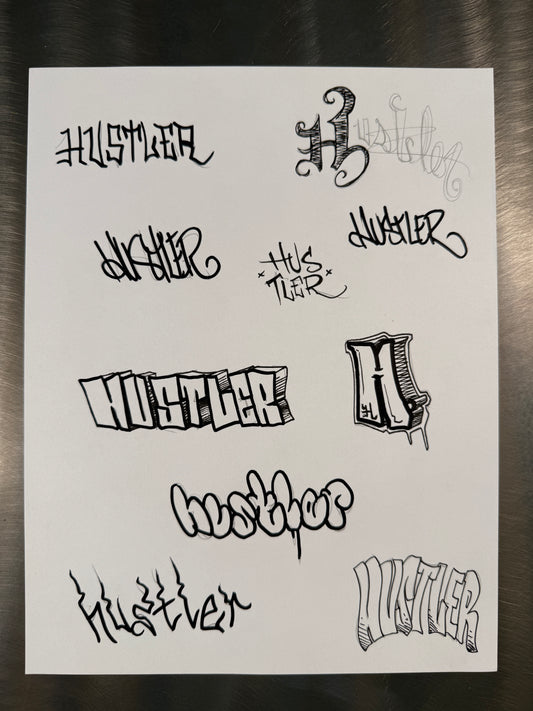 HUSTLER
Hustler
HUSTLER
HUSTLER
HUS
TLER
HUSTLER
H
hustler
hustler
HUSTLER